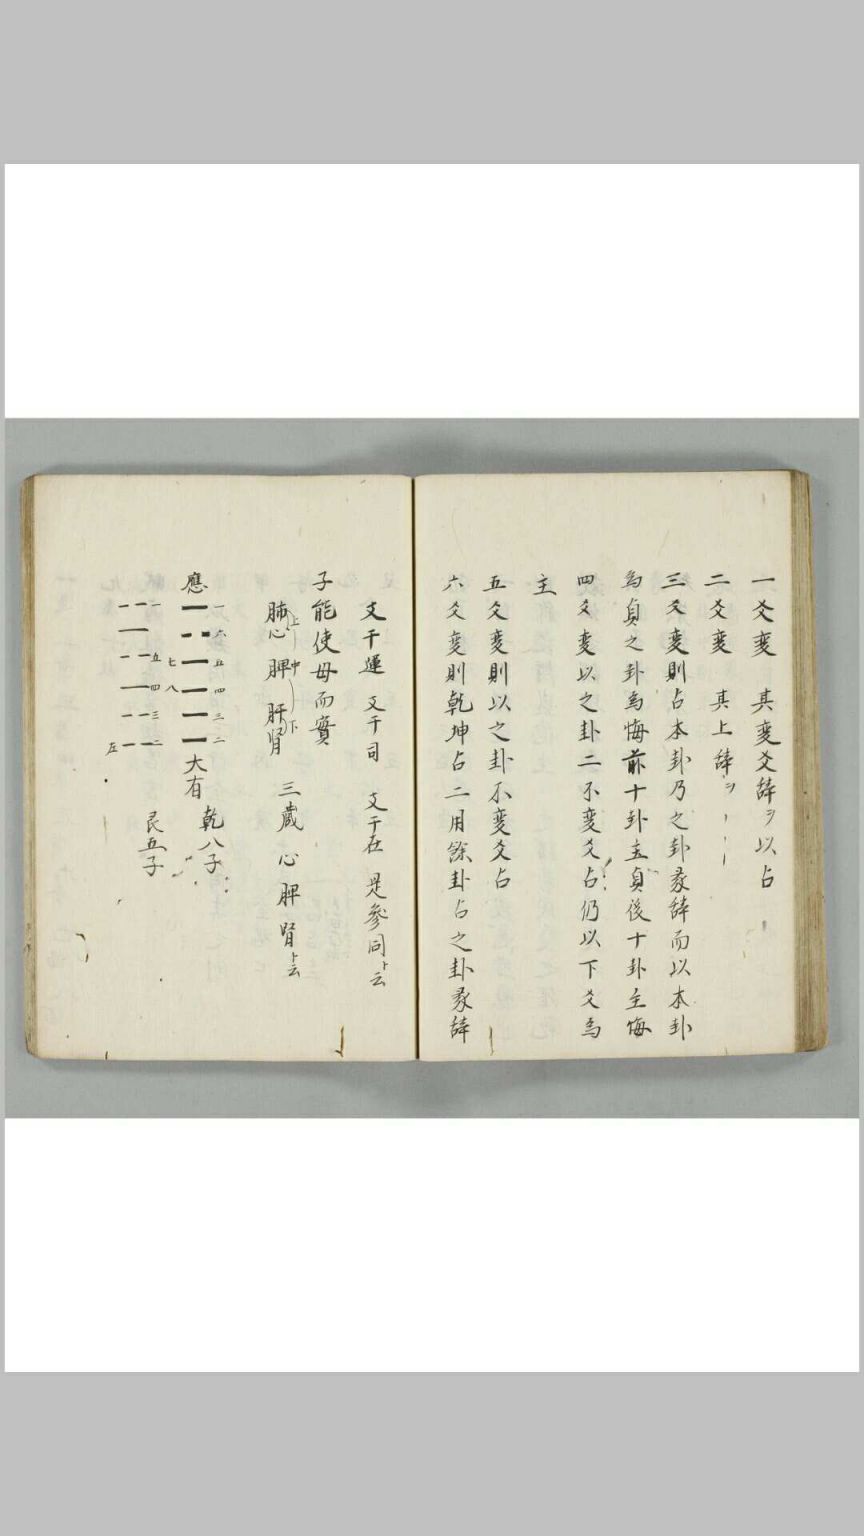 一爻変　其変爻辞ヲ以占
二爻変　其上辞ヲ〻〻
三爻変則占本卦乃之卦彖辞而以本卦
為貞之卦為悔前十卦主貞後十卦主悔
四爻変以之卦二不変爻占仍以下爻為
主
五爻変則以之卦不変爻占
六爻変則乾坤占二用餘卦占之卦彖辞
支干運　支干司　支干在　是参同ト云
子能使母而實
肺心　脾　肝腎　三蔵　心　脾　腎ト云
上　中　下
應
一六五四三二
七八
大有
乾八子
一五四三二
左
艮五子